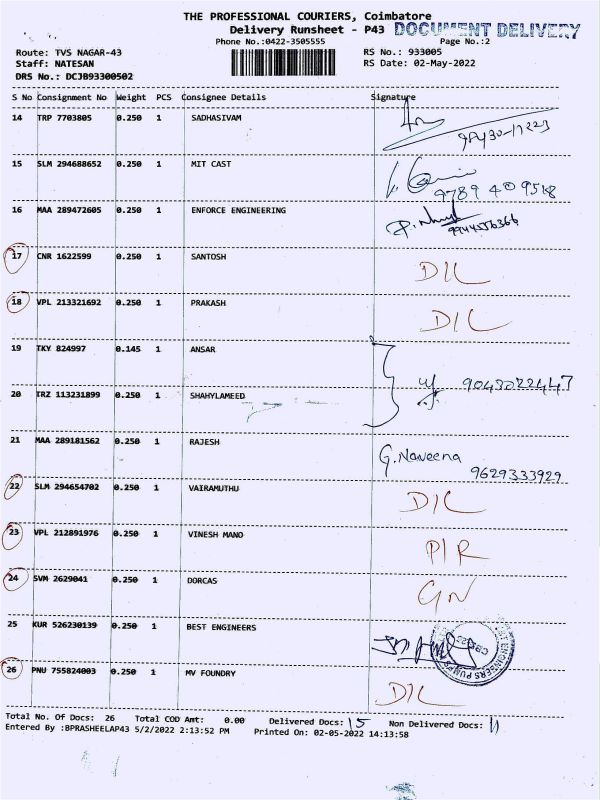 THE PROFESSIONAL COURIERS, Coimbatore
Delivery Runsheet - P43 DOCUMENT DELIVERY
Phone No.:0422-3505555 Page No.:2
Route: TVS NAGAR-43 RS No.: 933005
Staff: NATESAN RS Date: 02-May-2022
DRS No.: DCJB93300502
S No Consignment No Weight PCS Consignee Details Signature
14 TRP 7703805 0.250 1 SADHASIVAM
15 SLM 294688652 0.250 1 MIT CAST
9789 409518
16 MAA 289472605 0.250 1 ENFORCE ENGINEERING
9944556366
17 CNR 1622599 0.250 1 SANTOSH D/L
18 VPL 213321692 0.250 1 PRAKASH D/L
19 TKY 824997 0.145 1 ANSAR
9043022447
20 TRZ 113231899 0.250 1 SHAHYLAMEED
21 MAA 289181562 0.250 1 RAJESH G. Naveena
9629333929
22 SLM 294654702 0.250 1 VAIRAMUTHU D/L
23 VPL 212891976 0.250 1 VINESH MANO P/R
24 SVM 2629041 0.250 1 DORCAS GN
25 KUR 526230139 0.250 1 BEST ENGINEERS
26 PNU 755824003 0.250 1 MV FOUNDRY D/L
Total No. Of Docs: 26 Total COD Amt: 0.00 Delivered Docs: 15 Non Delivered Docs: 11
Entered By :BPRASHEELAP43 5/2/2022 2:13:52 PM Printed On: 02-05-2022 14:13:58